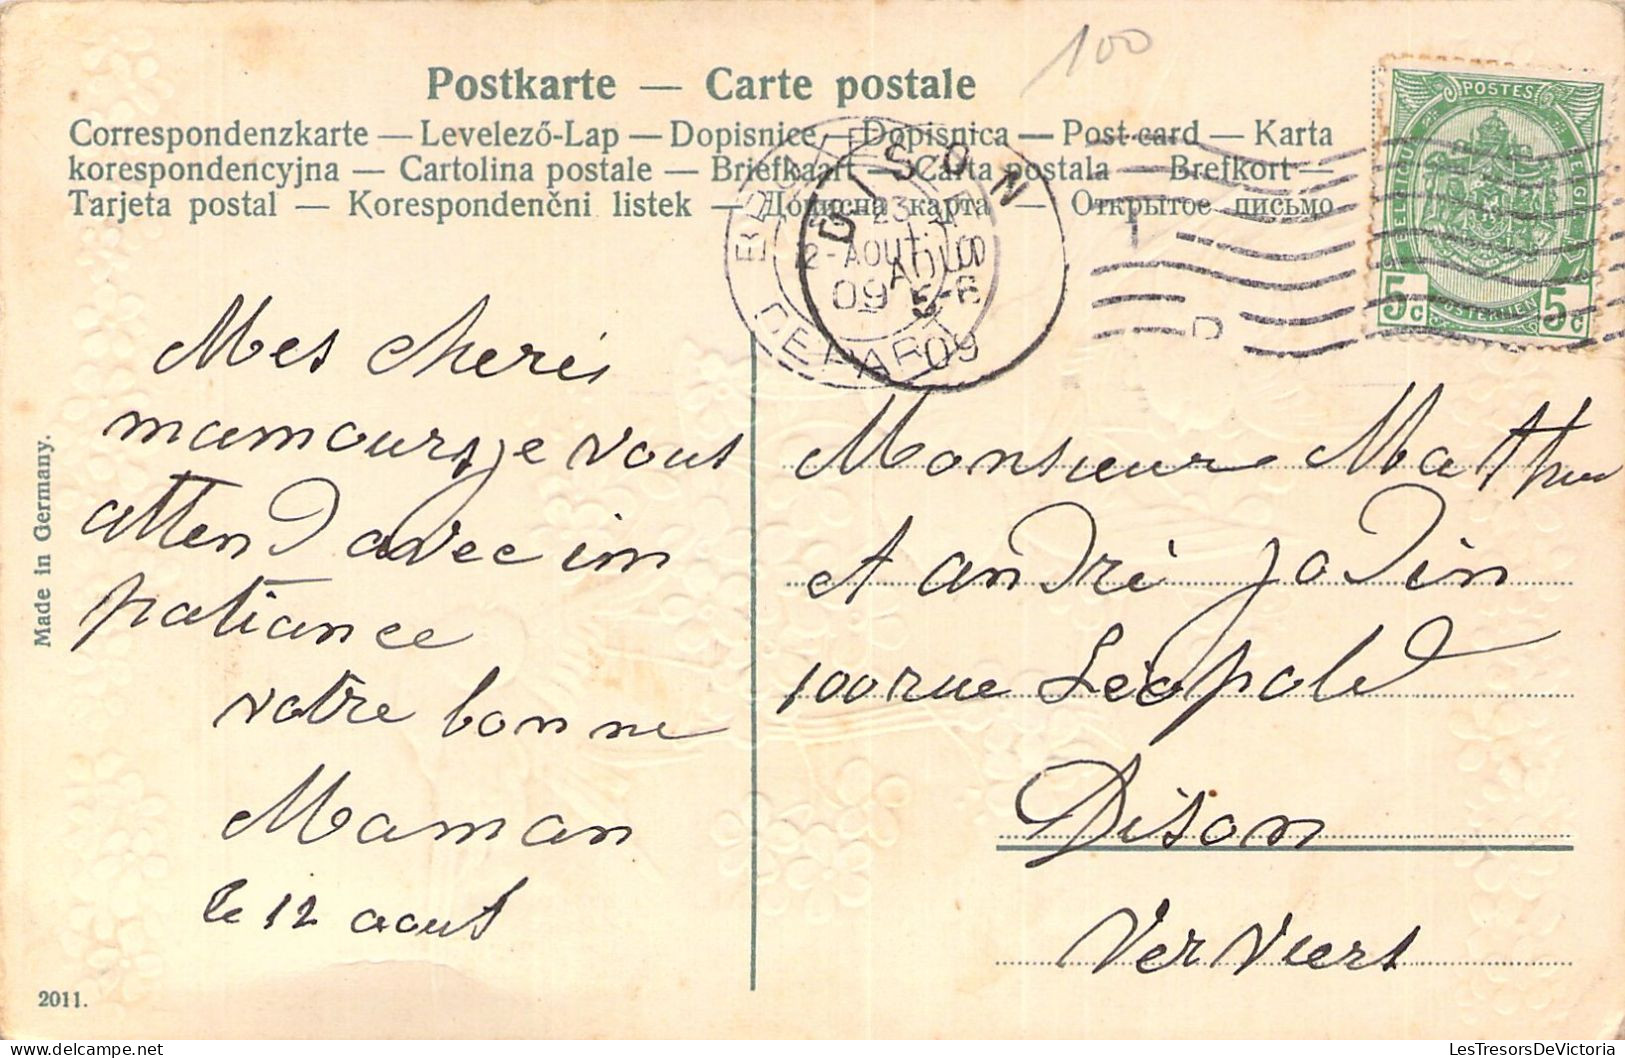 100
Postkarte — Carte postale
Correspondenzkarte — Levelező-Lap — Dopisnice — Dopisnica — Post-card — Karta
korespondencyjna — Cartolina postale — Briefkaart — Carta postala — Brefkort —
Tarjeta postal — Korespondenčni listek — Дописна карта — Открытое письмо
POSTES
5c 5c
DISON
23
12-AOUT
AOUT
09 5-6
DEPART
09
Mes cheris
mamours je vous
attend avec im
patiance
votre bonne
Maman
le 12 aout
Monsieur Mathieu
et andré jodin
100 rue Léopold
Dison
Verviers
Made in Germany.
2011.
LesTresorsDeVictoria